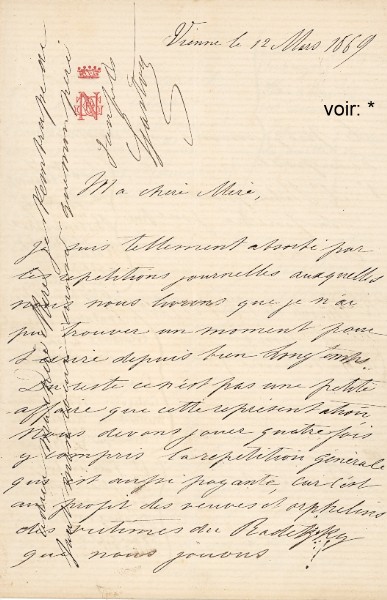 Vienne le 12 Mars 1869
voir: *
Ma chère Mère,
Je suis tellement absorbé par
les repetitions journelles auxquelles
nous nous livrons que je n'ai
pu trouver un moment pour
t'écrire depuis bien longtemps.
Du reste ce n'est pas une petite
affaire que cette représentation
Nous devons jouer quatre fois
y compris la repetition générale
qui est aussi payante, car c'est
au profit des veuves et orphelins
des victimes du Radetzky
que nous jouons